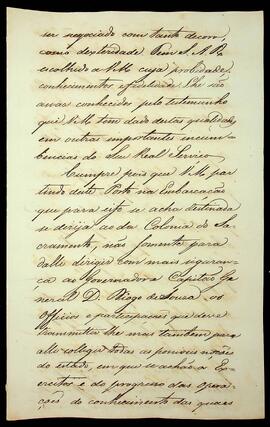 ser negociado com tanto decoro,
como dexteridade Tem S. A. R.
escolhido a VM cuja probidade,
conhecimentos e fidelidade lhe são
assas conhecidos pelo testimunho
que VM tem dado destas qualidades
em outras importantes incum-
bencias do Seu Real Serviço
Cumpre pois que VM par-
tindo deste Porto na Embarcação
que para isso se acha destinada
se dirija ao da Colonia do Sa-
cramento, não somente para
dalli dirigir com mais seguran-
ça ao Governador e Capitão Ge-
neral D. Diogo de Sousa os
Officios e participações que deve
transmittir-lhe mas tambem para
alli colligir todas as possiveis noticias
do estado, em que se achão os Exer-
citos e do progresso das opera-
ções do conhecimento das quaes